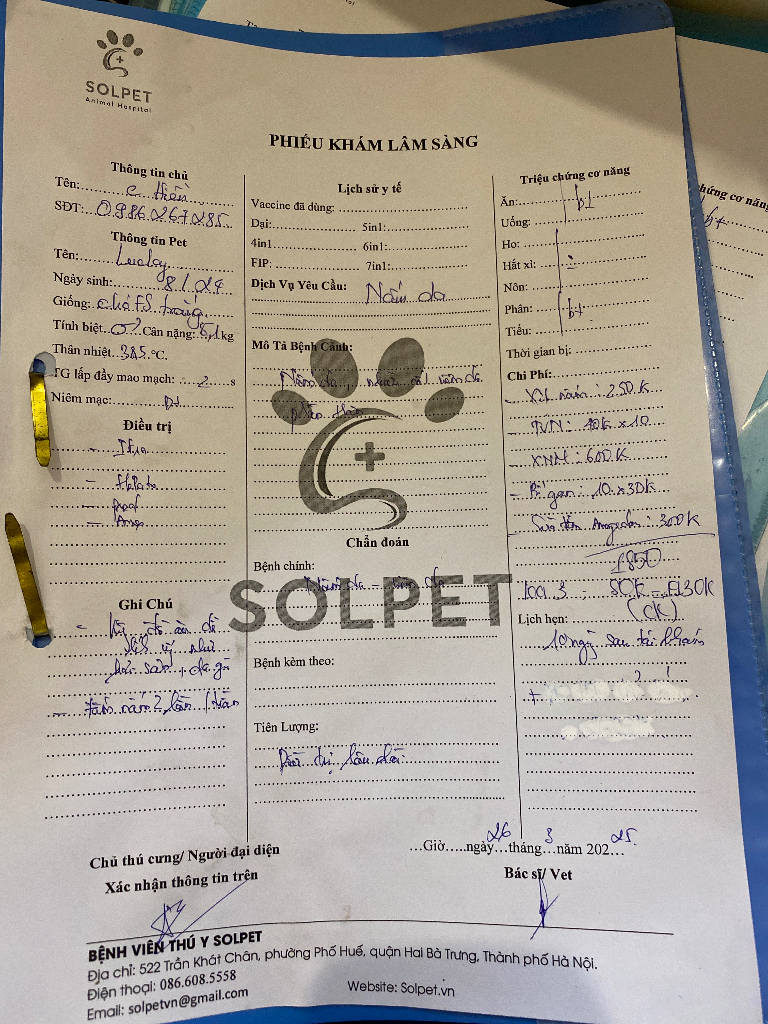 SOLPET
Animal Hospital
PHIẾU KHÁM LÂM SÀNG
Thông tin chủ
Tên: c Hiền
SĐT: 0986267285
Thông tin Pet
Tên: Lucky
Ngày sinh: 8/24
Giống: chó FS trắng
Tính biệt: ♂ Cân nặng: kg
Thân nhiệt 38.5 °C.
TG lấp đầy mao mạch: 2 s
Niêm mạc: bt
Điều trị
Ghi Chú
- đồ ăn dễ
dị ứng như
hải sản, da gà
- tắm nấm 2 lần / tuần
Lịch sử y tế
Vaccine đã dùng:
Dại: 5in1:
4in1 6in1:
FIP: 7in1:
Dịch Vụ Yêu Cầu: Nấm da
Mô Tả Bệnh Cảnh:
Nấm da, viêm da
toàn thân
Chẩn đoán
Bệnh chính:
Nấm da - viêm da
SOLPET
Bệnh kèm theo:
Tiên Lượng:
Điều trị lâu dài
Triệu chứng cơ năng
Ăn: bt
Uống:
Ho:
Hắt xì: -
Nôn:
Phân: bt
Tiểu:
Thời gian bị:
Chi Phí:
- XN nấm: 250K
- 10K x 10
- XNM: 600K
- Bổ gan: 10 x 30K
- Sữa tắm: 300K
1850
(CK)
Lịch hẹn:
10 ngày sau tái khám
+
Giờ ngày 26 tháng 3 năm 202 25
Chủ thú cưng/ Người đại diện
Xác nhận thông tin trên
Bác sĩ/ Vet
BỆNH VIỆN THÚ Y SOLPET
Địa chỉ: 522 Trần Khát Chân, phường Phố Huế, quận Hai Bà Trưng, Thành phố Hà Nội.
Điện thoại: 086.608.5558
Email: solpetvn@gmail.com
Website: Solpet.vn
hứng cơ năng
bt